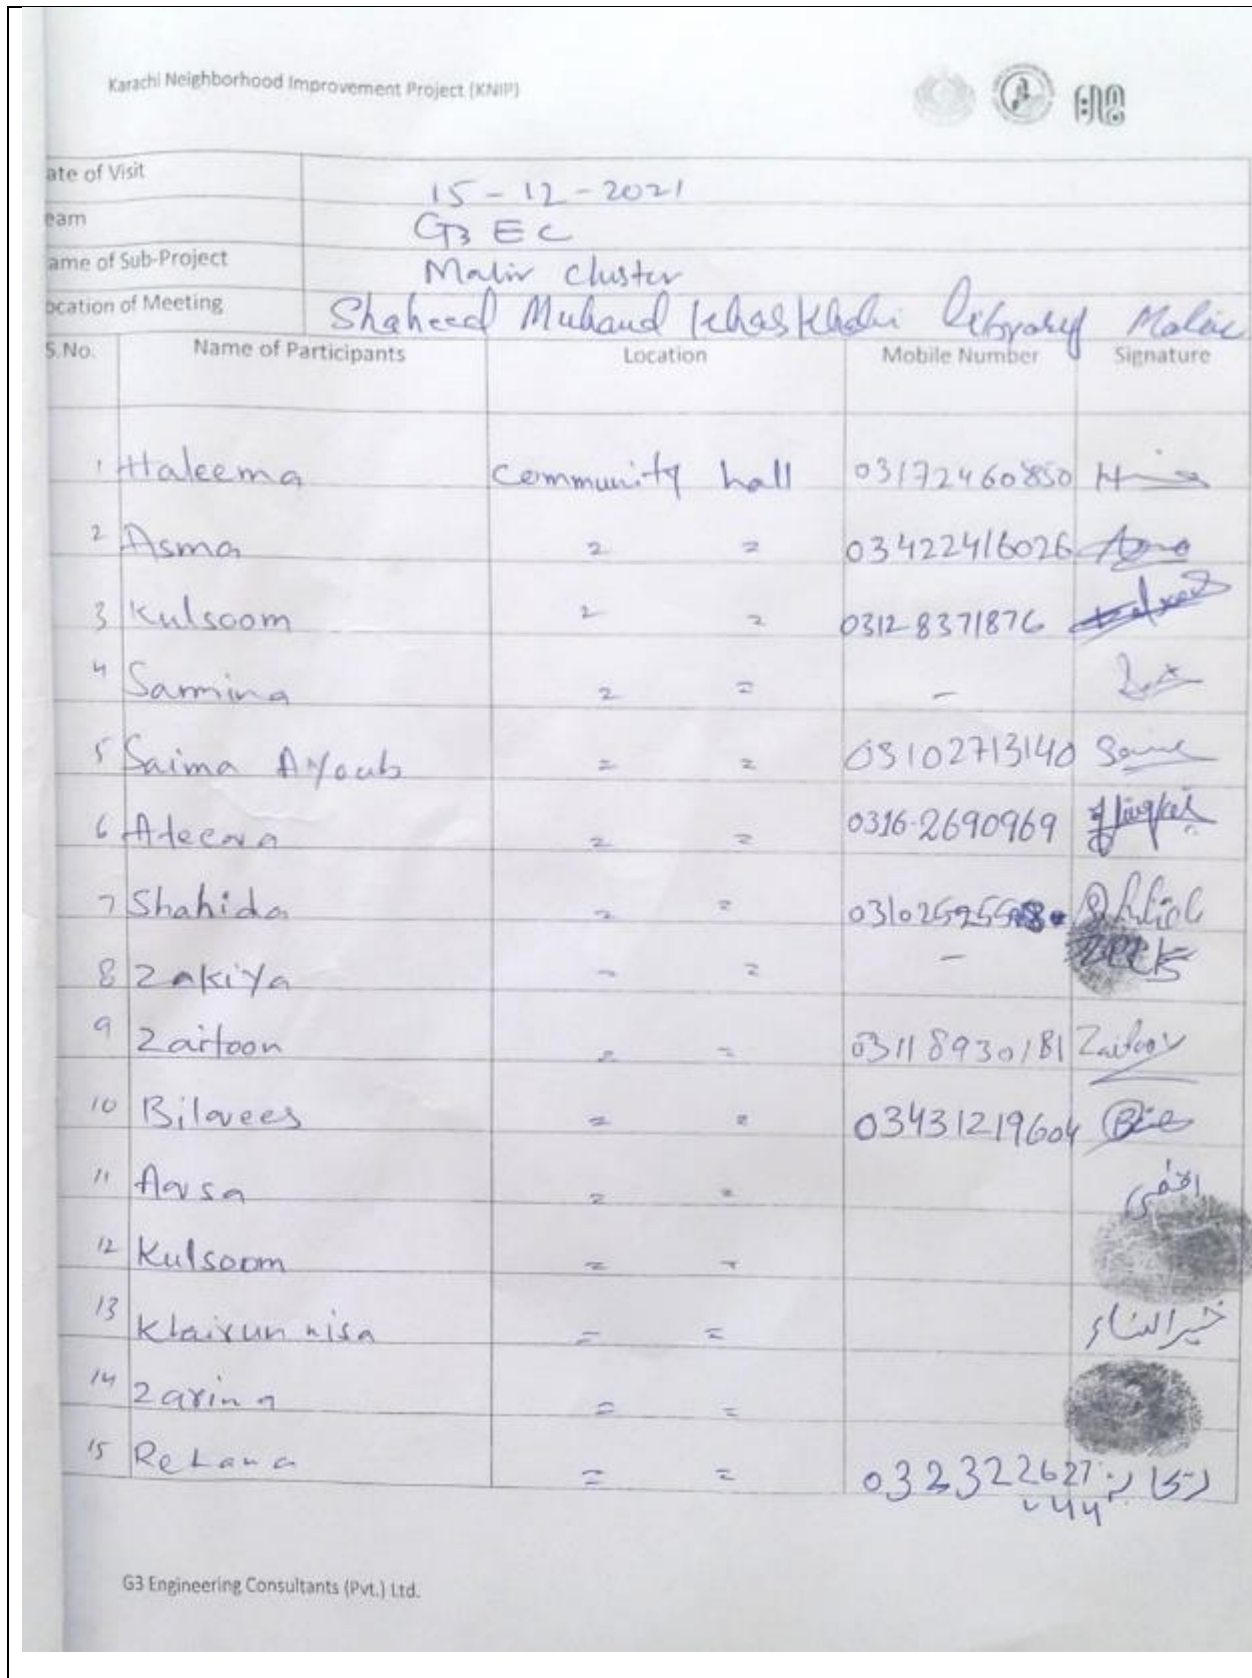 Karachi Neighborhood Improvement Project (KNIP)
ate of Visit 15-12-2021
eam G3 EC
ame of Sub-Project Malir Cluster
ocation of Meeting Shaheed Muhaud Khas Kheli library Malir
S.No. Name of Participants Location Mobile Number Signature
1 Haleema Community hall 03172460850
2 Asma = = 03422416026
3 Kulsoom = = 0312-8371876
4 Samina = = -
5 Saima Ayoub = = 03102713140
6 = = 0316-2690969
7 Shahida = =
8 Zakiya = = -
9 Zaitoon = = 03118930181 Zaitoon
10 Bilqees = = 03431219604
11 Aqsa = = اقصٰی
12 Kulsoom = =
13 Khairun nisa = = خیرالنساء
14 Zarina = =
15 Rehana = = 032322627
G3 Engineering Consultants (Pvt.) Ltd.